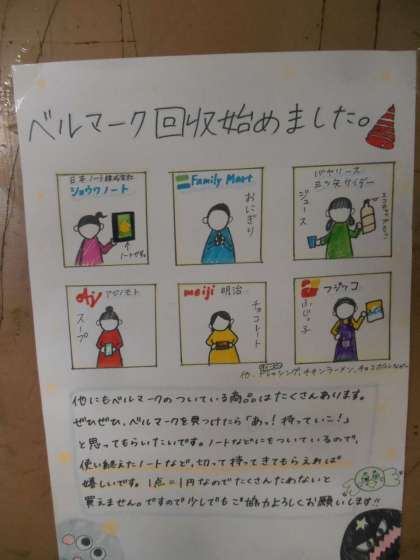 ベルマーク回収始めました。
日本ノート株式会社
ショウワノート
ノートが多い
Family Mart
おにぎり
バヤリース
三ツ矢サイダー
ジュース
味の素
スープ
meiji 明治
チョコレート
フジッコ
ふじっ子
他にもベルマークのついている商品はたくさんあります。
ぜひぜひ、ベルマークを見つけたら「あっ!持っていこ!」
と思ってもらいたいです。ノートなどにもついているので、
使い終えたノートなど、切って持ってきてもらえれば
嬉しいです。1点=1円なのでたくさんためないと
買えません。ですので少しでもご協力よろしくお願いします!!